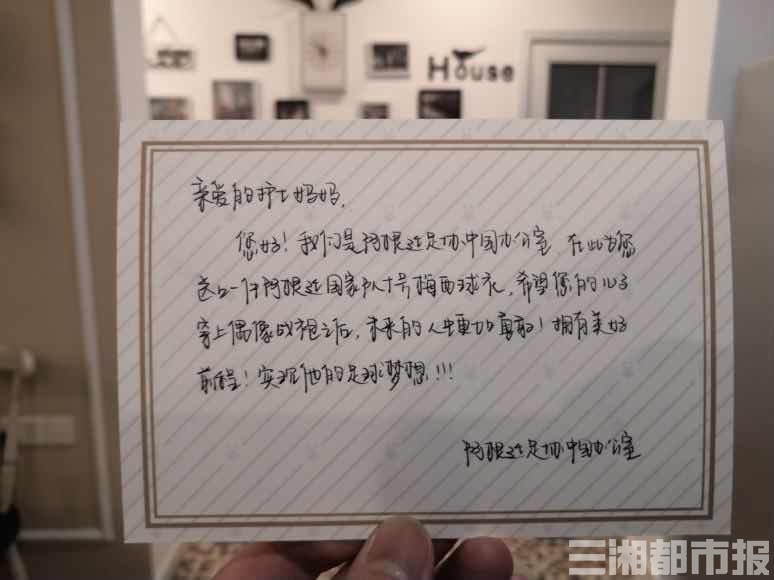 House
亲爱的护士妈妈，
您好！我们是阿根廷足协中国办公室，在此为您
送上一件阿根廷国家队十号梅西球衣，希望您的儿子
穿上偶像战袍之后，未来的人生更加勇敢！拥有美好
前程！实现他的足球梦想！！！
阿根廷足协中国办公室
三湘都市报